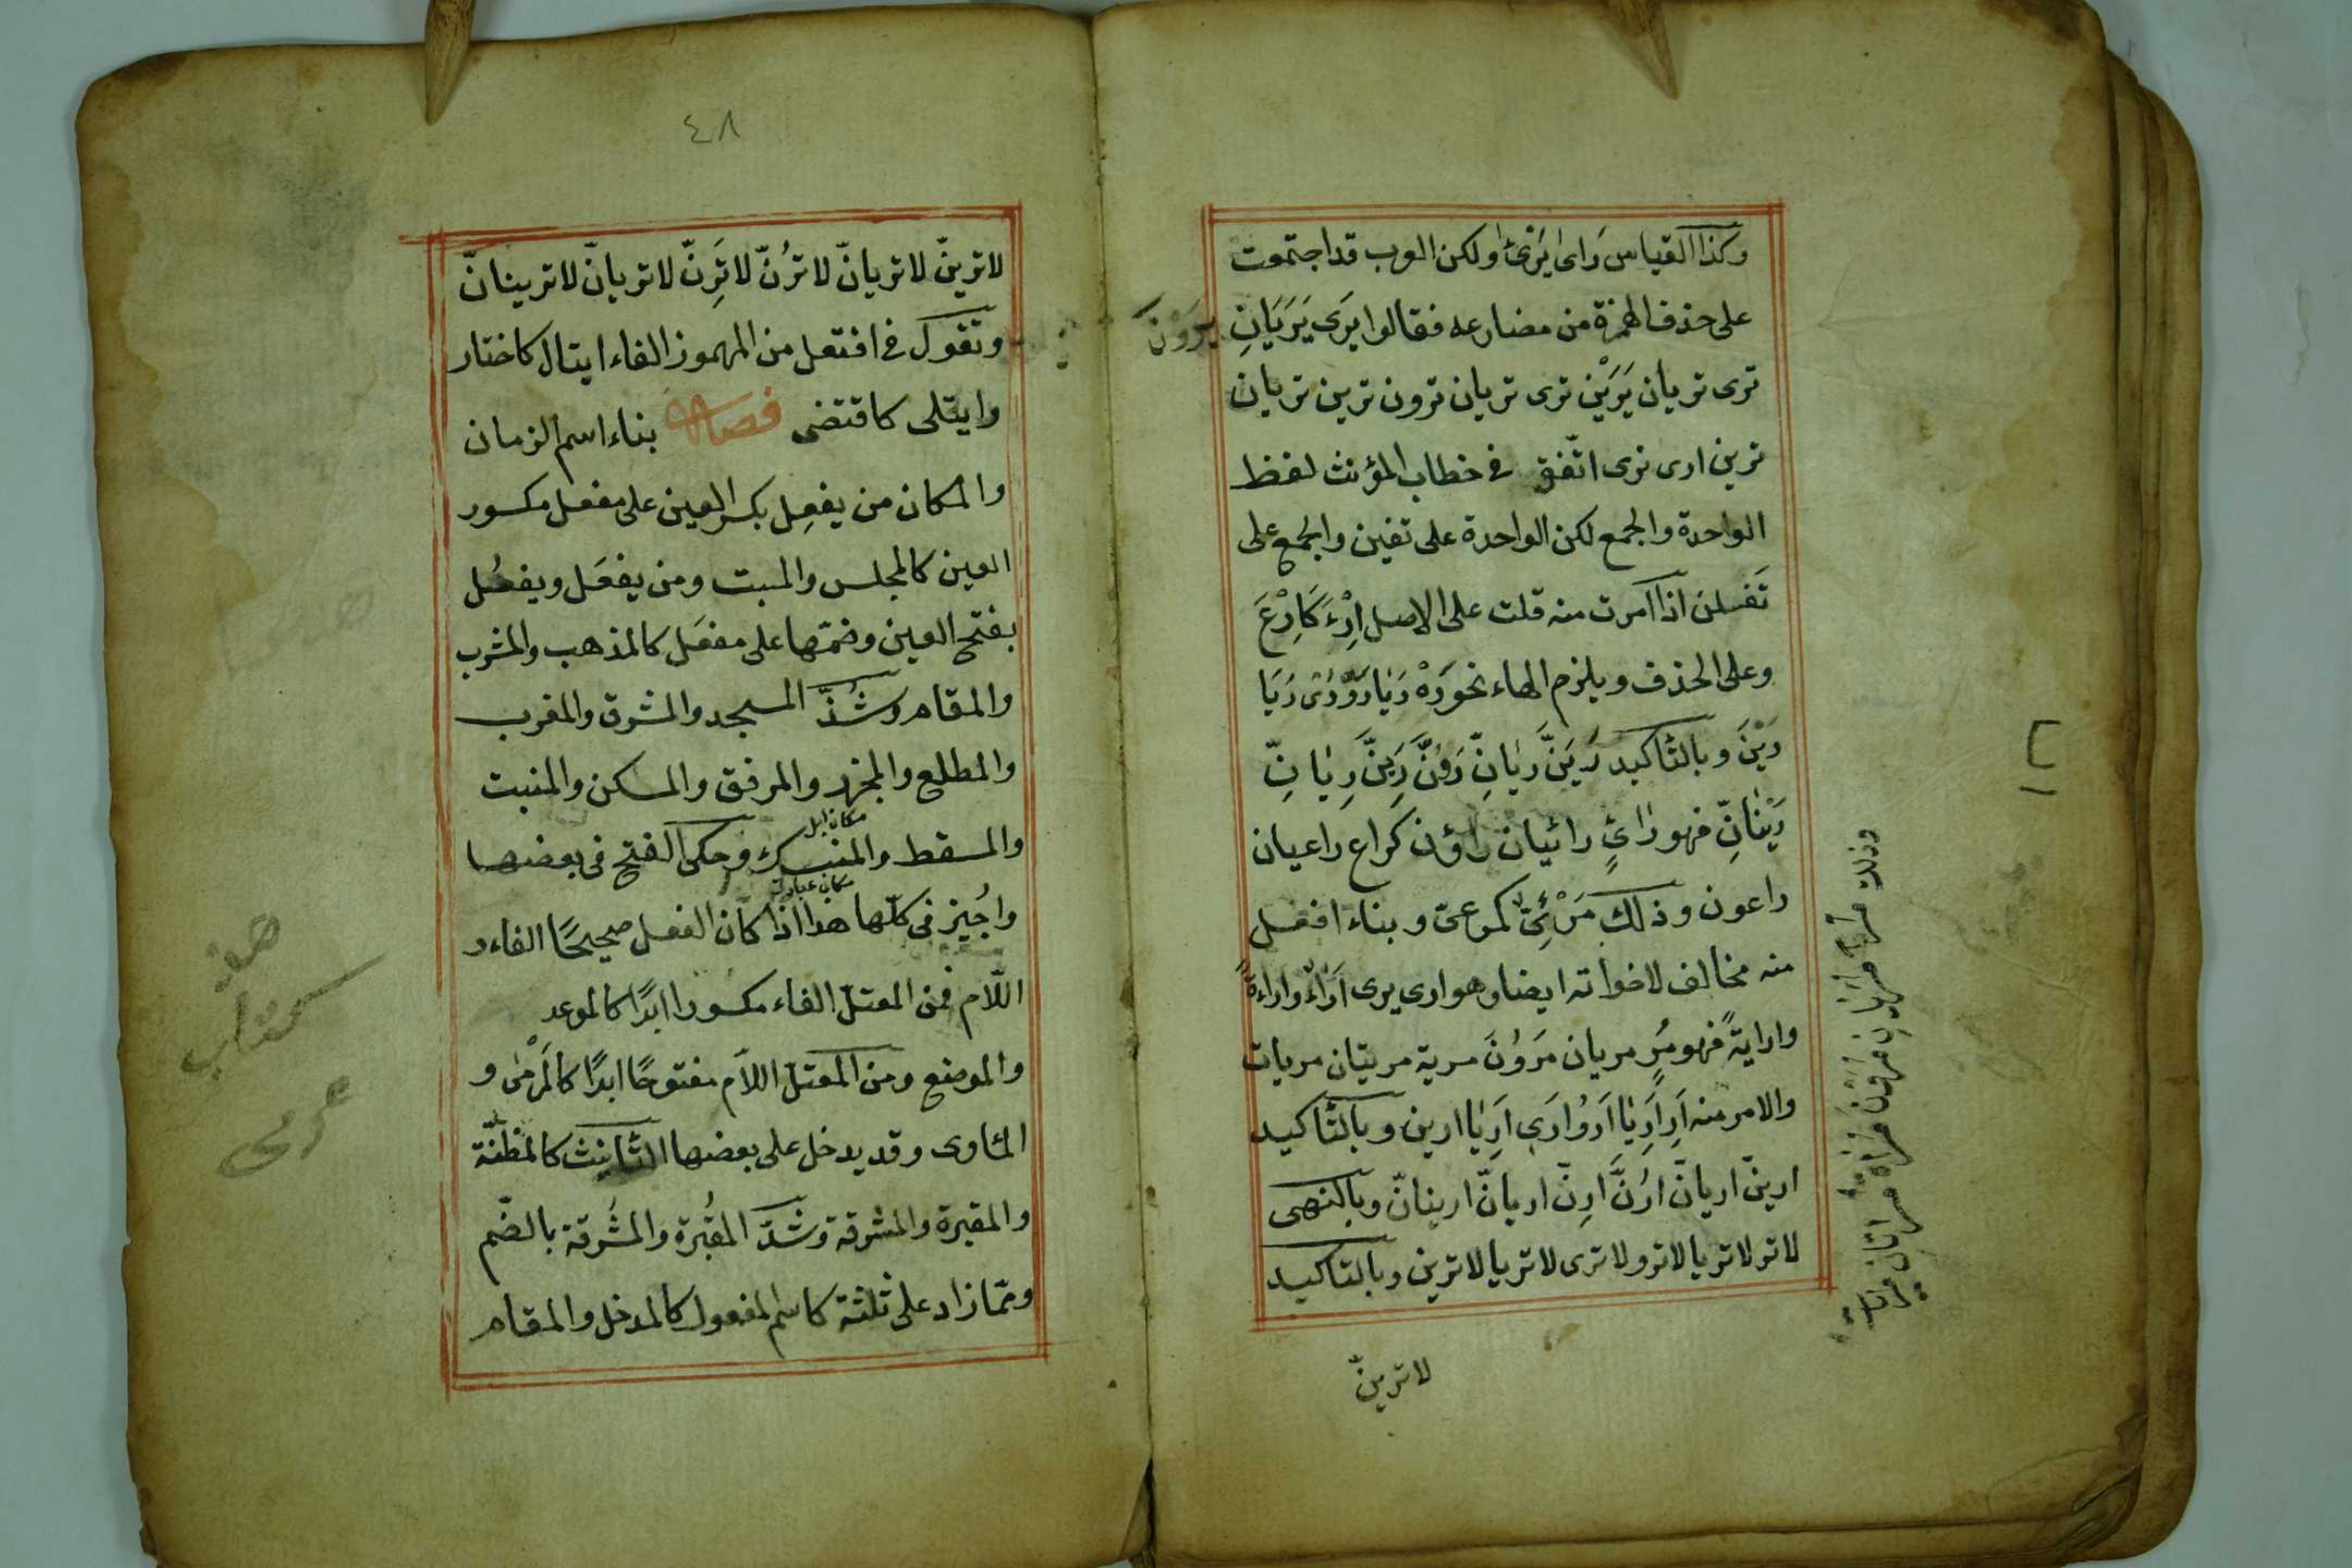 وكذا القياس رَاى يَرْئى ولكن العرب قد اجتمعت
على حذف الهمزة من مضارعه فقالوا يرَى يَرَيَانِ يرَوْن
ترى تريان يَرَيْن ترى تريان ترون ترين تريان
ترين ارى نرى اتّفق فى خطاب المؤنث لفظ
الواحدة والجمع لكن الواحدة على تفين والجمع على
تَفَلن اذا امرت منه قلت على الاصل اِرْءَ كَاِرْعَ
وعلى الحذف ويلزم الهاء نحو رَهْ رَيَا رَوْ رَىْ رَيَا
رَيْنَ وبالتّاكيد رَيَنَّ رَيَانِّ رَوُنَّ رَيِنَّ رَيَانِّ
رَيْنَانِّ فهو رَاىٍٔ رائيان راؤن كراع راعيان
راعون وذلك مَرْئِىٌّ كمرعىّ وبناء افعل
منه مخالف لاخواته ايضا وهو ارى يرى اَرَاءً واراءةً
وارايةً فهو مُرٍ مريان مَرَوُنَ مرية مريتان مريات
والامر منه اَرِ اَرِيَا اَرُوْا اَرِى اَرِيَا ارين وبالتّاكيد
ارينّ اريانّ ارُنَّ ارِنّ اريانّ ارينانّ وبالنهى
لا تر لا تريا لا ترو لا ترى لا تريا لا ترين وبالتاكيد
لا ترينّ
٤٨
لا ترينّ لا تريانّ لا ترُنّ لا تَرِنّ لا تريانّ لا ترينانّ
وتقول فى افتعل من المهموز الفاء ايتال كاختار
وايتلى كاقتضى فصل بناء اسم الزمان
والمكان من يفعِل بكسر العين على مفعل مكسور
العين كالمجلس والمبت ومن يفعَل ويفعُل
بفتح العين وضمّها على مفعَل كالمذهب والمشرب
والمقام وشذّ المسجد والمشرق والمغرب
والمطلع والمجزر والمرفق والمسكن والمنبت
مكان ابل
والمسقط والمنسك وحكى الفتح فى بعضها
مكان عبادت
واُجيز فى كلّها هذا اذا كان الفعل صحيحًا الفاء و
اللّام فمن المعتلّ الفاء مكسورا ابدًا كالموعد
والموضع ومن المعتلّ اللّام مفتوحًا ابدًا كالمَرْمٰى و
الماوى وقد يدخل على بعضها التّانيث كالمظنّة
والمقبرة والمشرقة وشذّ المقُبرة والمشُرقة بالضّم
وممّا زاد على ثلثة كاسم المفعول كالمدخل والمقام
كتاب